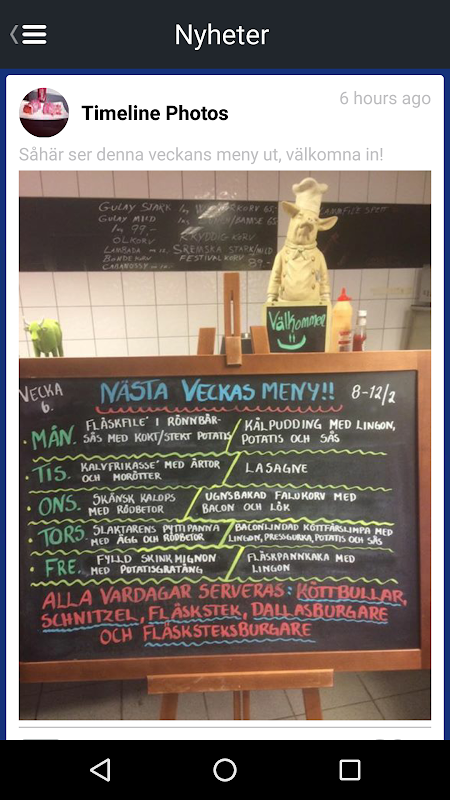 Nyheter
Timeline Photos
6 hours ago
Såhär ser denna veckans meny ut, välkomna in!
GULAY STARK
GULAY MILD
79.-
ÖLKORV
LAMBADA
BONDEKORV
CABANOSSY
KRYDDIGKORV
SREMSKA STARK/MILD
FESTIVALKORV
89.-
Välkommen
VECKA
6.
NÄSTA VECKAS MENY!!
8-12/2
MÅN.
FLÄSKFILE' I RÖNNBÄR-
SÅS MED KOKT/STEKT POTATIS
KÅLPUDDING MED LINGON,
POTATIS OCH SÅS
TIS.
KALVFRIKASSE' MED ÄRTOR
OCH MORÖTTER
LASAGNE
ONS.
SKÅNSK KALOPS
MED RÖDBETOR
UGNSBAKAD FALUKORV MED
BACON OCH LÖK
TORS.
SLAKTARENS PYTTIPANNA
MED ÄGG OCH RÖDBETOR
BACONLINDAD KÖTTFÄRSLIMPA MED
LINGON, PRESSGURKA, POTATIS OCH SÅS
FRE.
FYLLD SKINKMIGNON
MED POTATISGRATÄNG
FLÄSKPANNKAKA MED
LINGON
ALLA VARDAGAR SERVERAS: KÖTTBULLAR,
SCHNITZEL, FLÄSKSTEK, DALLASBURGARE
OCH FLÄSKSTEKSBURGARE